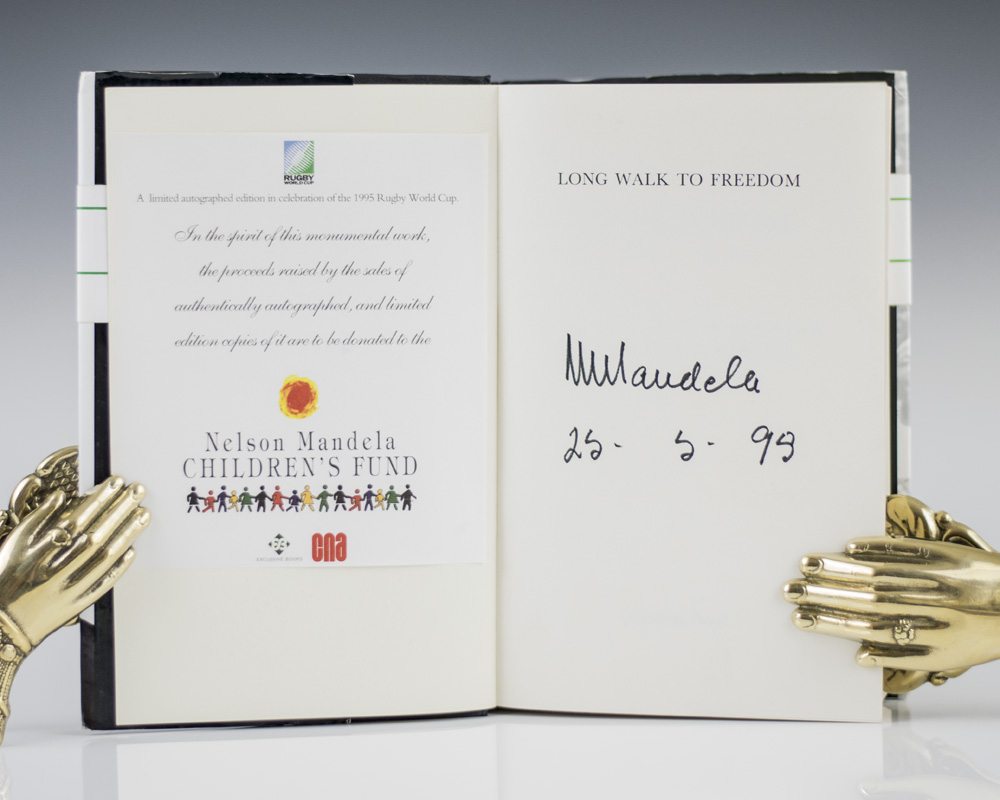 RUGBY
WORLD CUP
A limited autographed edition in celebration of the 1995 Rugby World Cup.
In the spirit of this monumental work,
the proceeds raised by the sales of
authentically autographed, and limited
edition copies of it are to be donated to the
Nelson Mandela
CHILDREN'S FUND
EXCLUSIVE BOOKS
cna
LONG WALK TO FREEDOM
NMandela
25- 5- 95